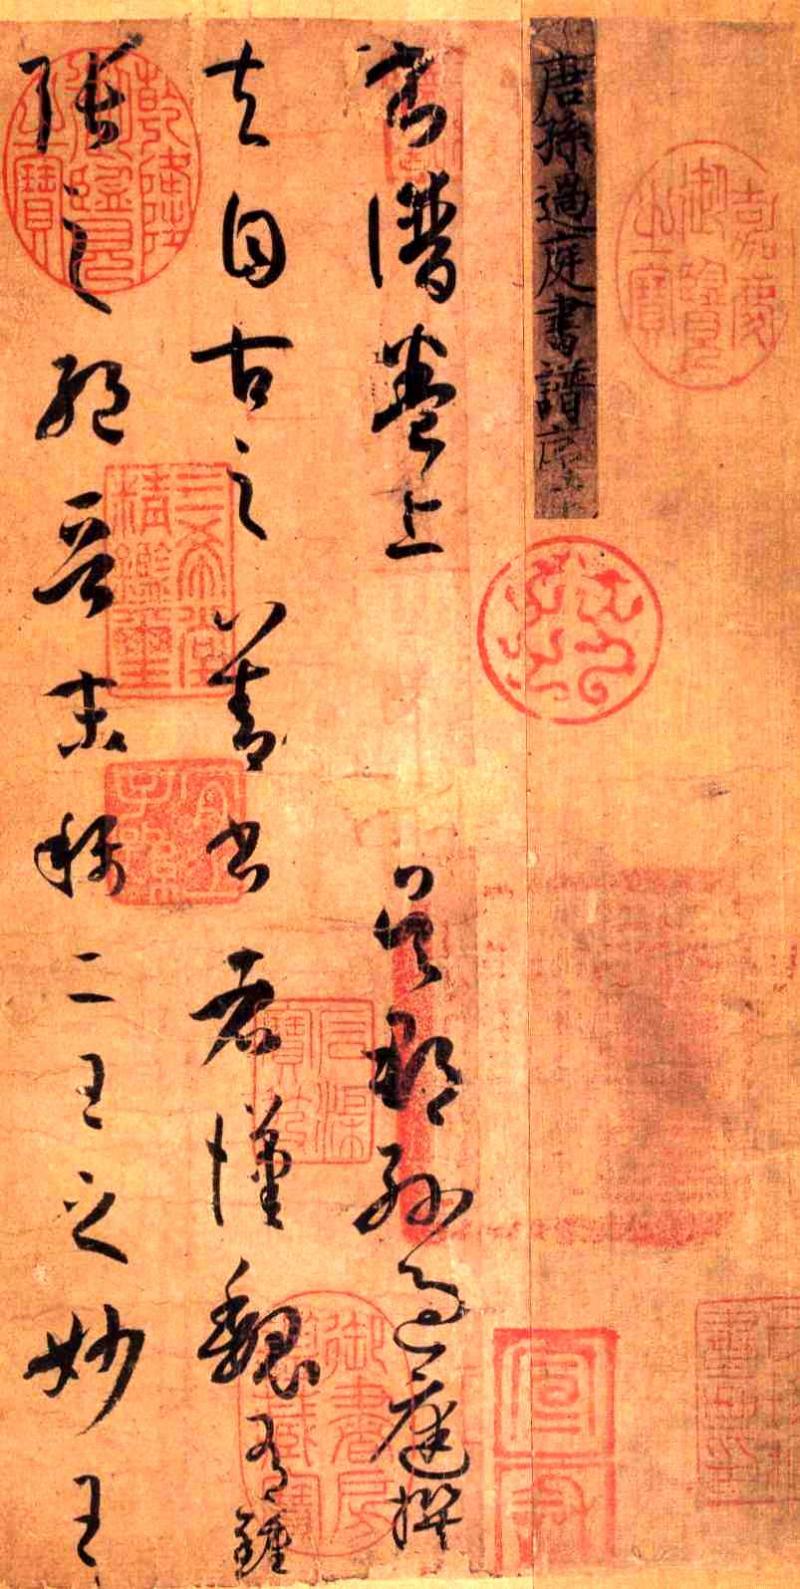 嘉慶御覽之寶
唐孫過庭書譜序
宣和
書譜卷上 吳郡孫過庭撰
夫自古之善書者漢魏有鍾
張之絕晉末稱二王之妙王
乾隆御覽之寶
三希堂精鑑璽
宜子孫
石渠寶笈
御書房鑒藏寶